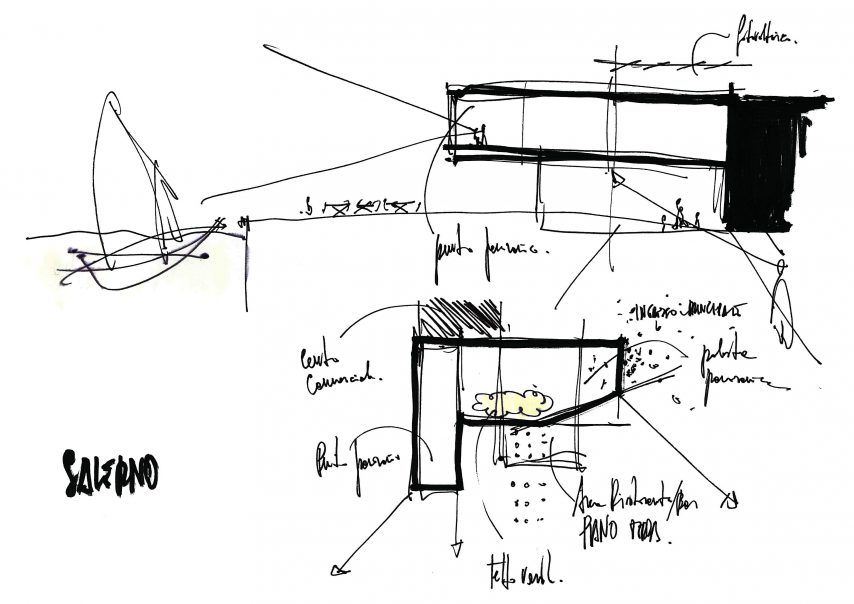 fotovoltaico.
punto panoramico.
INGRESSO PRINCIPALE
Centro
Commerciale.
punto
panoramico
Punto panoramico
SALERNO
Area Ristorante/Bar
PIANO TERRA.
tetto verde.